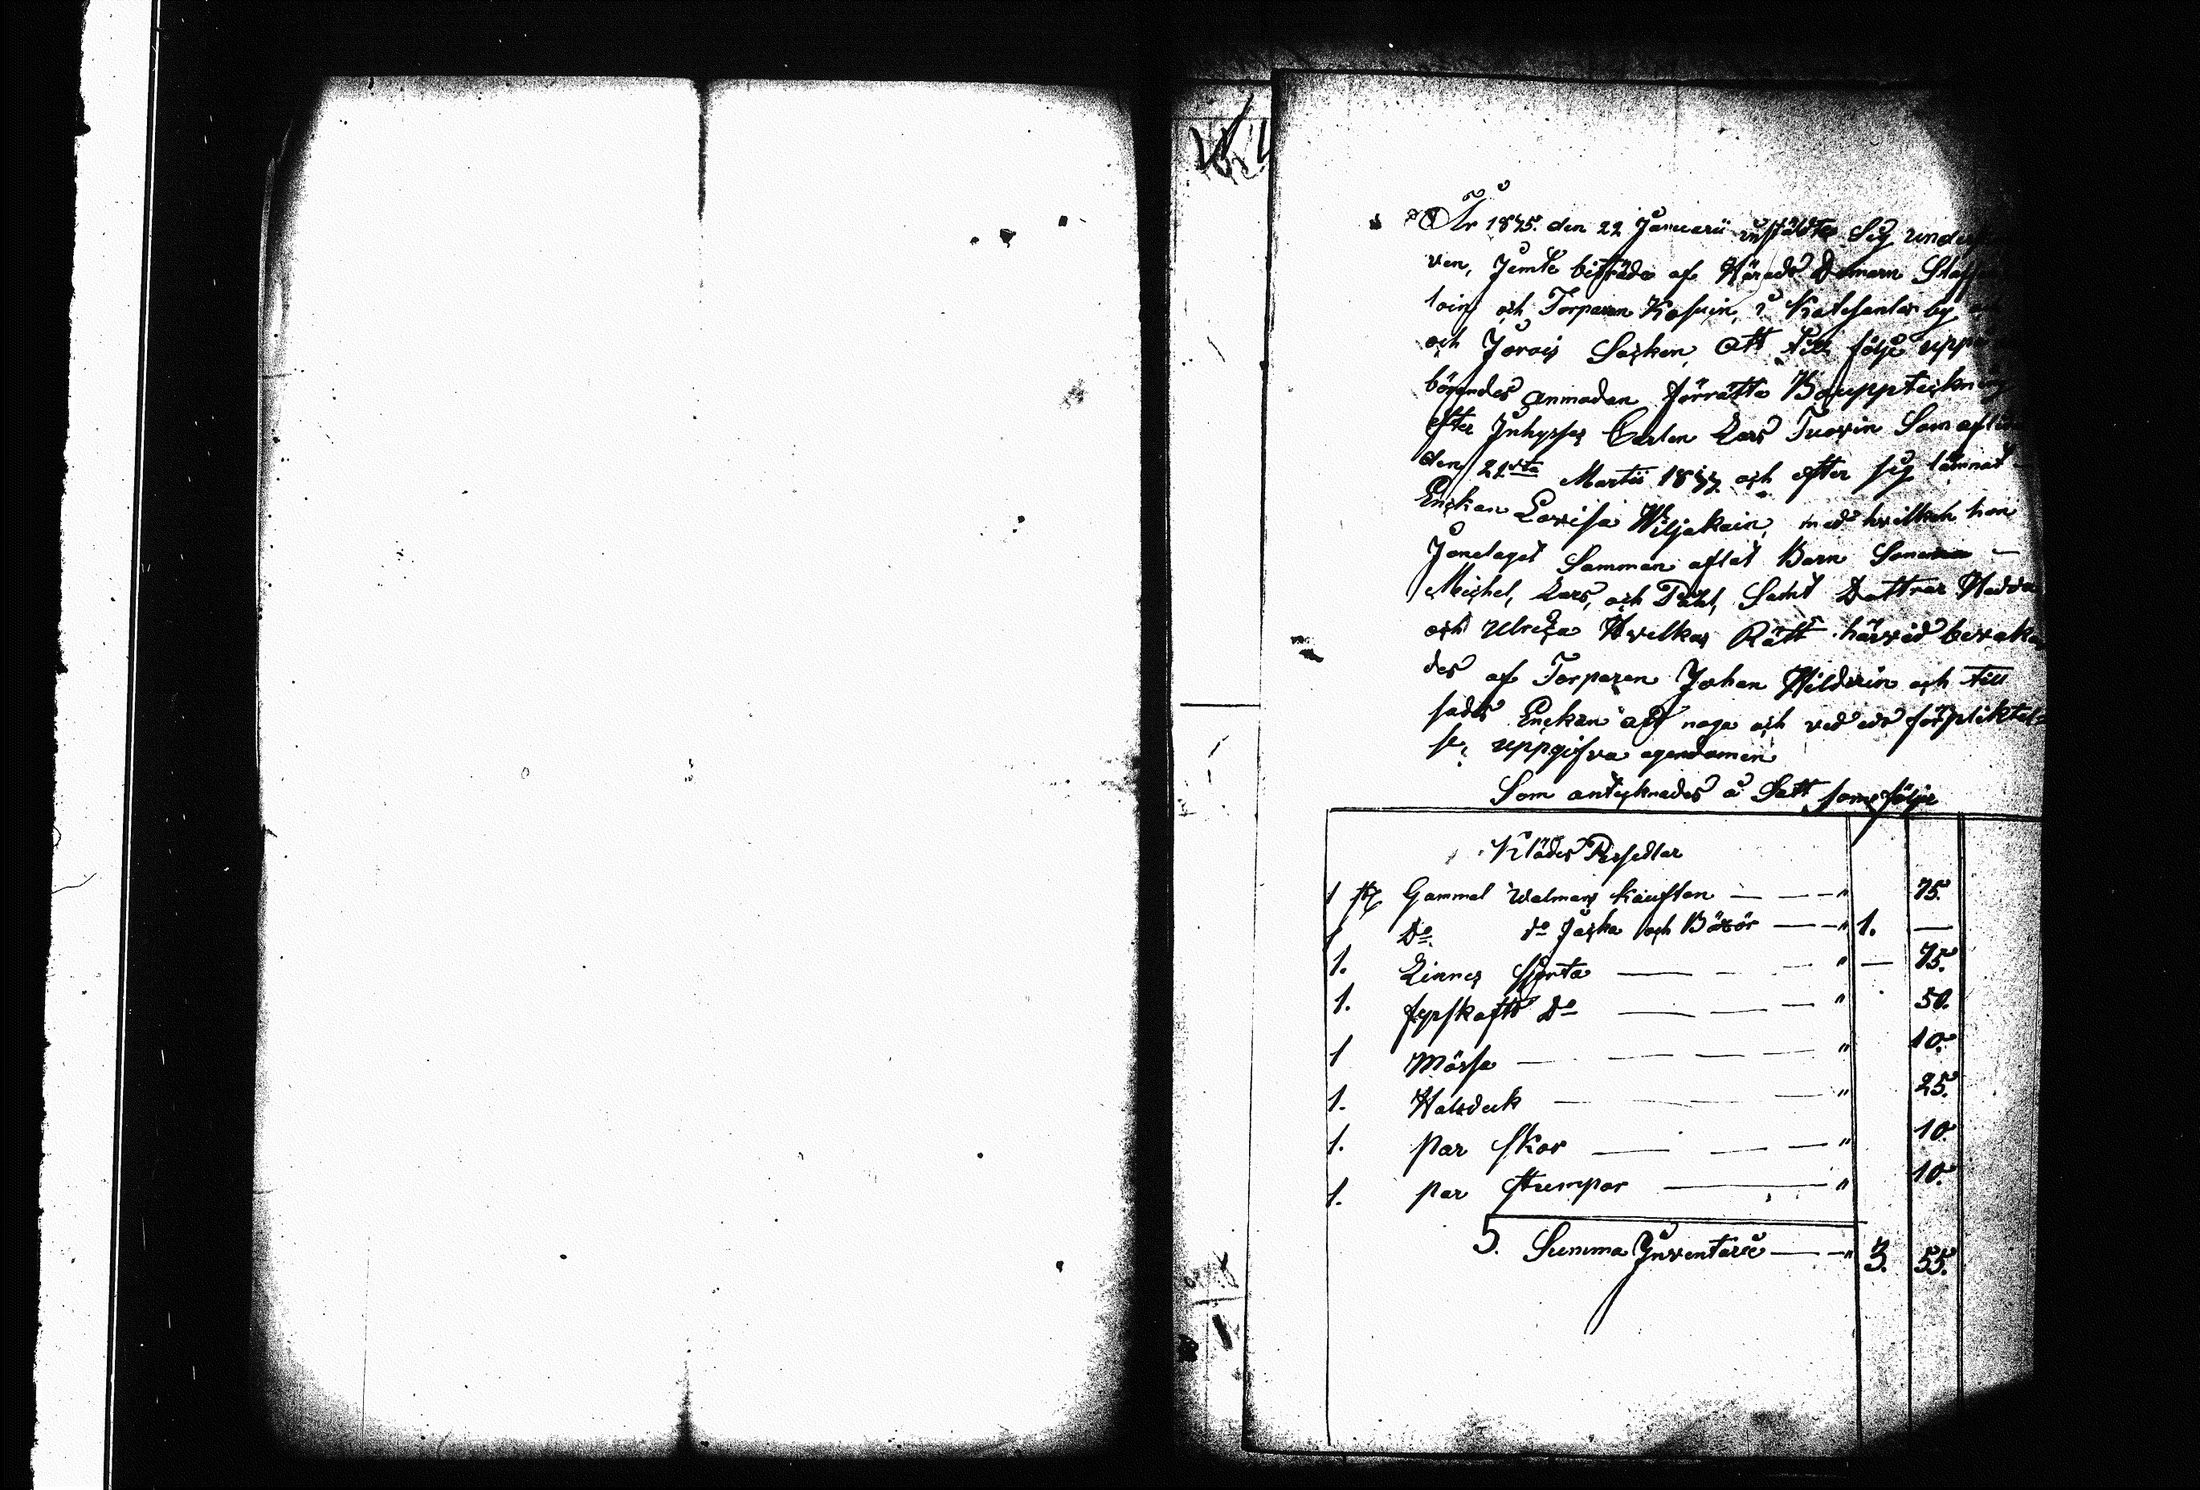 År 1875. den 22 Januarii instälte Sig
ven, Jemte biträde af Härads Domarn
och Torparen Kosuin, i Kaichanlax by
och Jorois Socken, Att till följe
börandes anmodan förrätta Bouppteckning
efter Inhyses Carlen Lars Tuovin Som
den 22dra Martii 1877 och efter sig lämnat
Enckan Lovisa Wiljakain, med hvilken hon
Jonelaget Samman aflat Barn
Michel, Lars, och Påhl, Samt Dottrar Hedda
och Ulrica Hvilkas Rätt härvid bevaka
des af Torparen Johan och till
sades Enckan att noga och ved eds förpliktel
se, uppgifva egendomen
Som antecknades å Sätt som följer
Klädes Persedlar
1 st Gammal Walmars kauftan — — — " 75.
1 Do do Jacka och Böxor — — " 1. —
1. Linnes Skjorta — — — " — 75.
1. fyrskafts Do — — — " 50.
1 Mössa — — — — — " 10.
1. Halsduk — — — — " 25.
1. Par Skor — — — " 10.
1. par Strumpor — " 10.
S. Summa Inventarii — — " 3. 55.